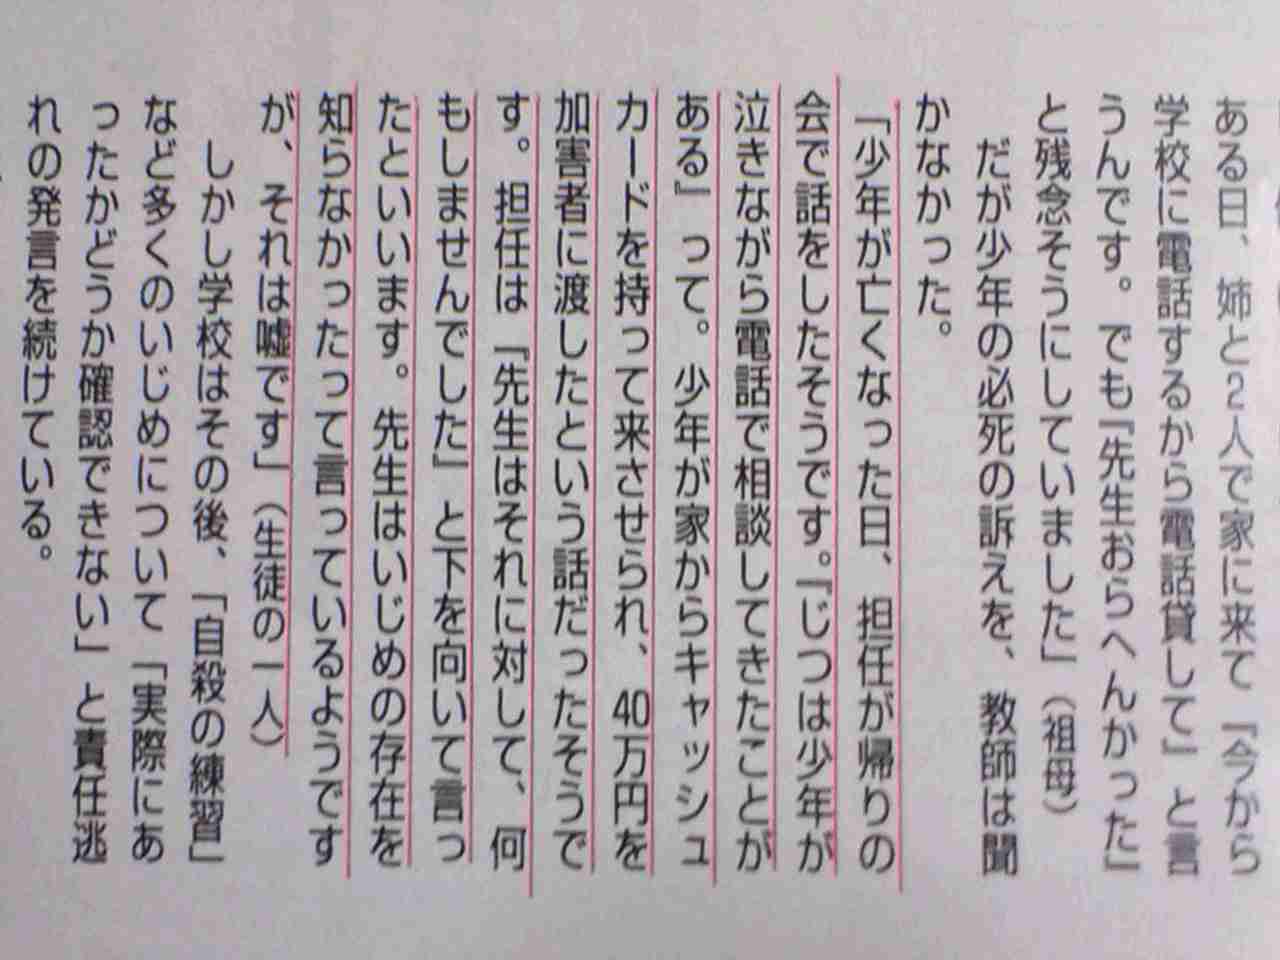 ある日、姉と2人で家に来て『今から
学校に電話するから電話貸して』と言
うんです。でも『先生おらへんかった』
と残念そうにしていました」（祖母）
だが少年の必死の訴えを、教師は聞
かなかった。
「少年が亡くなった日、担任が帰りの
会で話をしたそうです。『じつは少年が
泣きながら電話で相談してきたことが
ある』って。少年が家からキャッシュ
カードを持って来させられ、40万円を
加害者に渡したという話だったそうで
す。担任は『先生はそれに対して、何
もしませんでした』と下を向いて言っ
たといいます。先生はいじめの存在を
知らなかったって言っているようです
が、それは嘘です」（生徒の一人）
しかし学校はその後、「自殺の練習」
など多くのいじめについて「実際にあ
ったかどうか確認できない」と責任逃
れの発言を続けている。